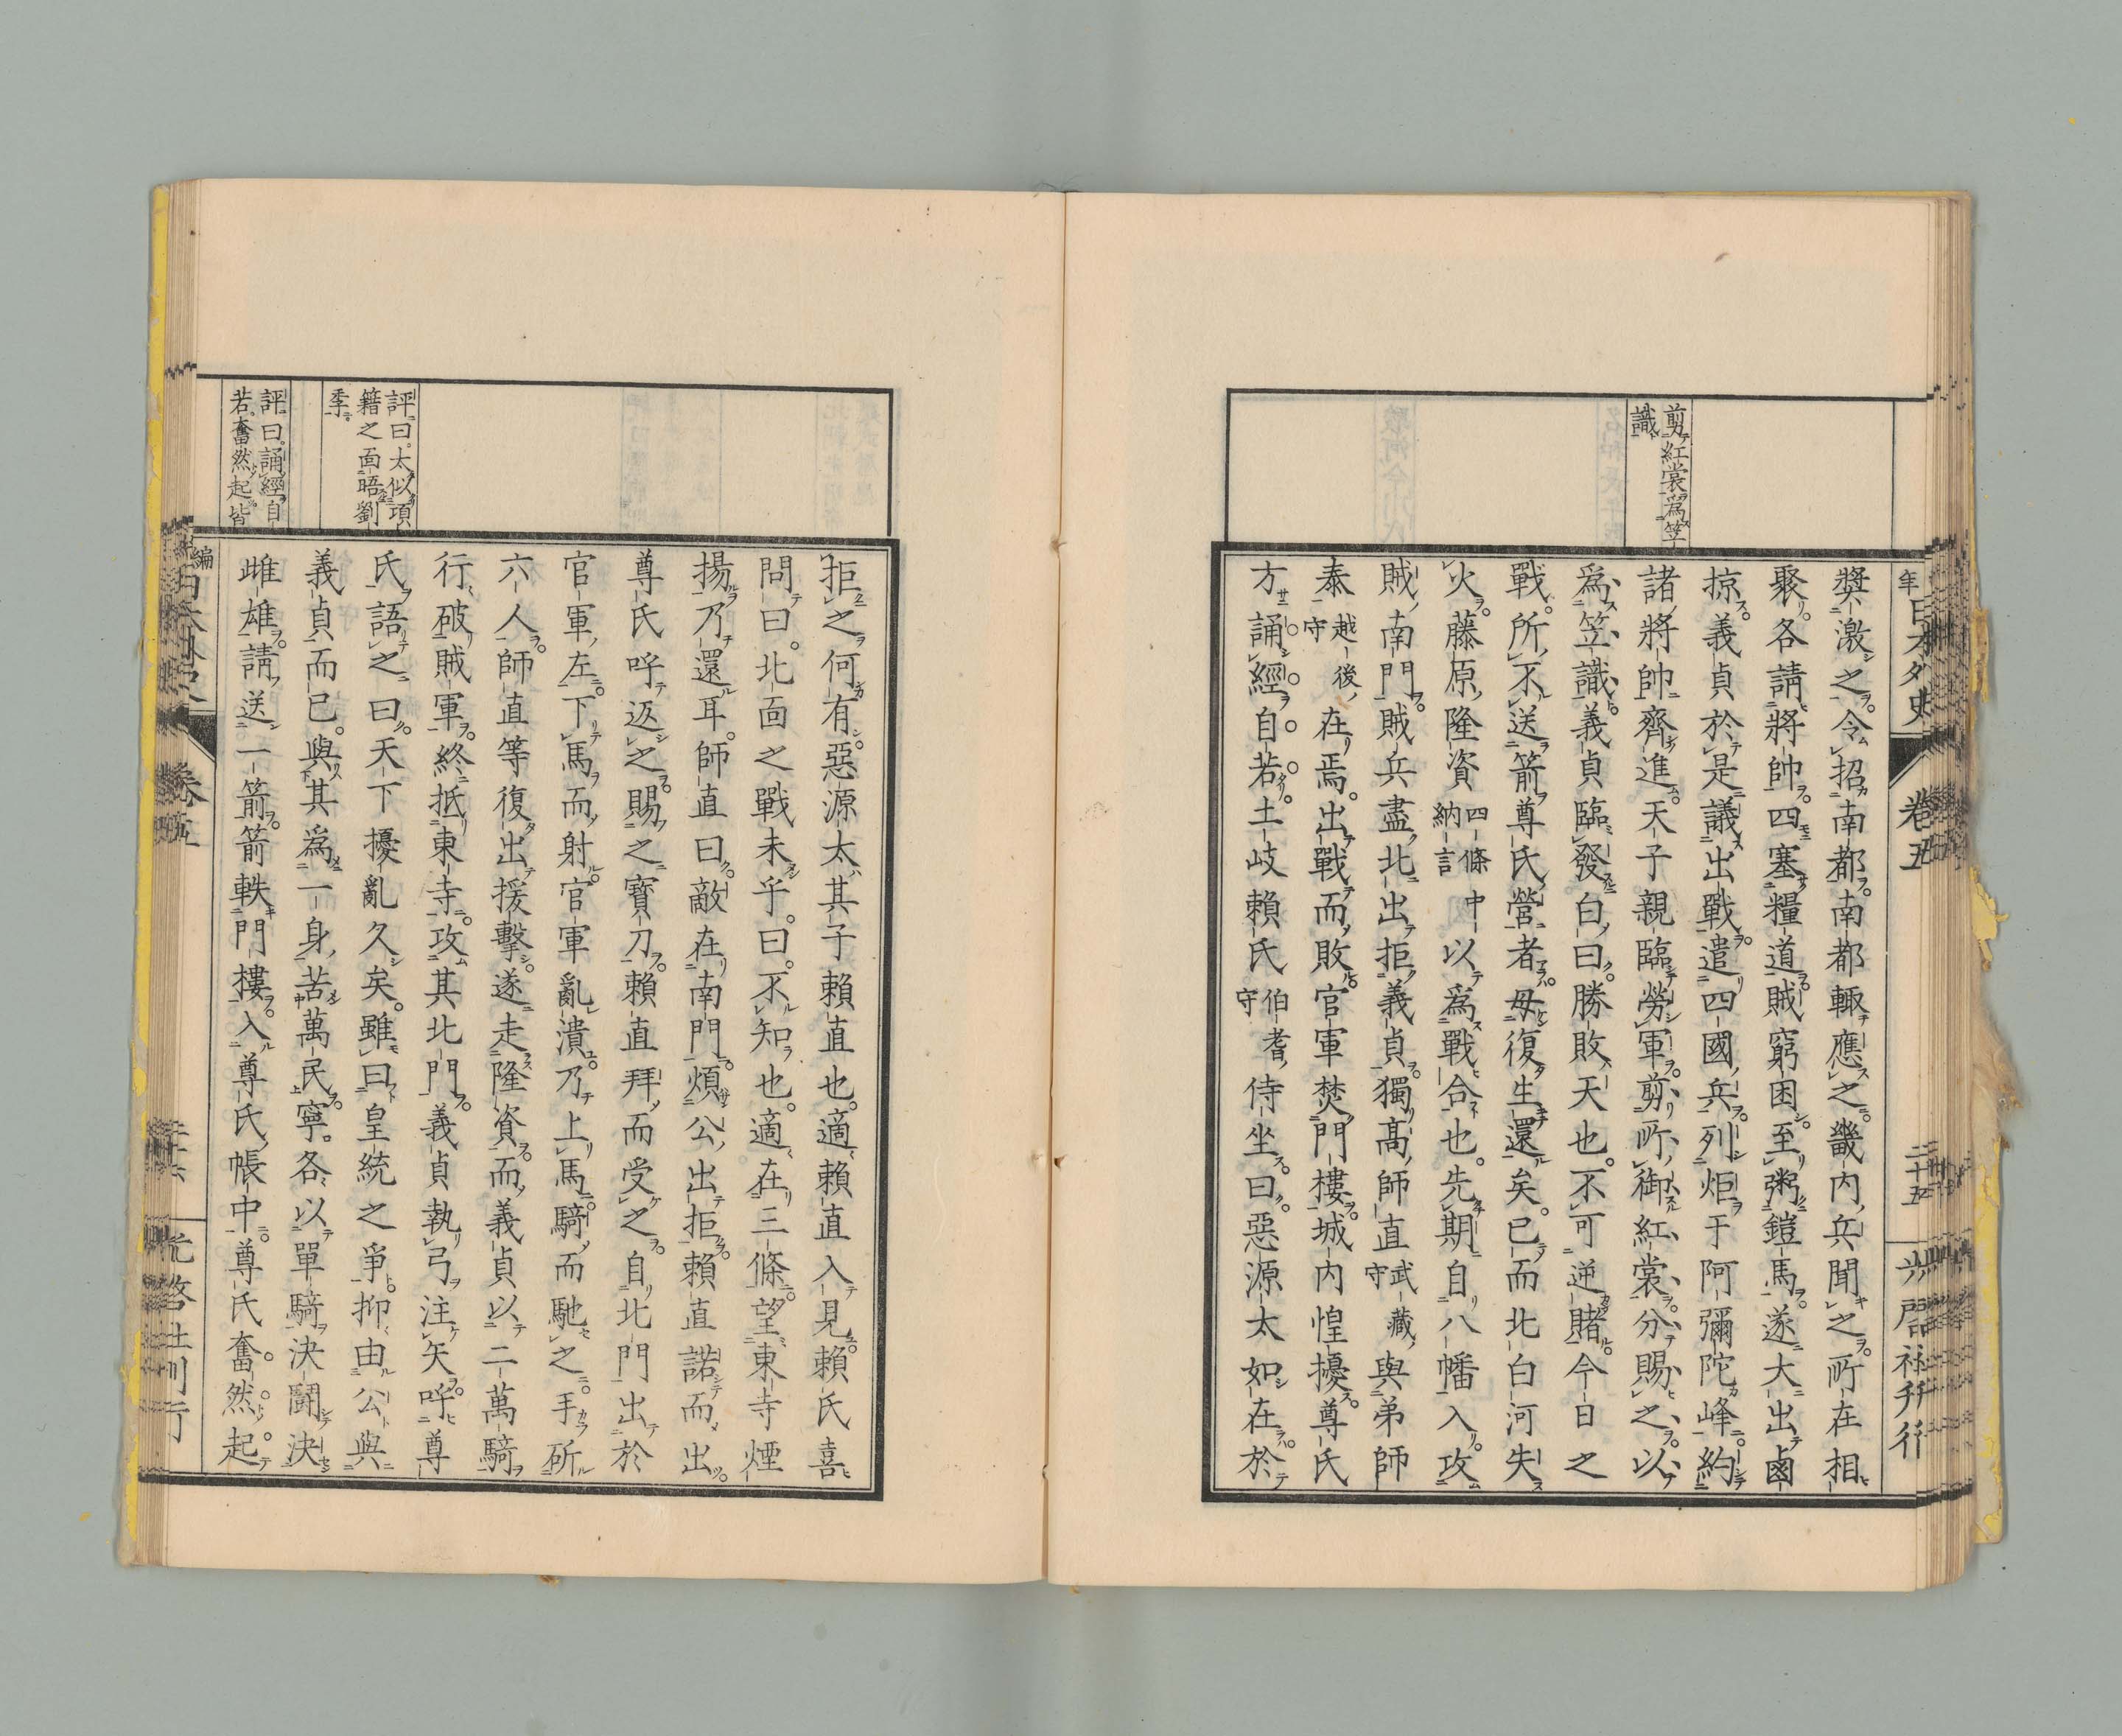 年 日本外史 卷五 二十五
剪紅裳爲笠
識
奬激之。令招南都。南都輙應之。畿内兵聞之。所在相
聚。各請將帥。四塞糧道。賊窮困。至粥鎧馬。遂大出鹵
掠。義貞於是議出戰。遣四國兵。列炬于阿彌陀峰。約
諸將帥齊進。天子親臨勞軍。剪所御紅裳。分賜之。以
爲笠識。義貞臨發白曰。勝敗天也。不可逆賭。今日之
戰。所不送箭尊氏營者。毋復生還矣。已而北白河失
火。藤原隆資四條中納言以爲戰合也。先期自八幡入攻
賊南門。賊兵盡北出拒義貞。獨高師直武藏守與弟師
泰越後守在焉。出戰而敗。官軍焚門樓。城内惶擾。尊氏
方誦經。自若。土岐頼氏伯耆守侍坐。曰。惡源太如在。於
拒之何有。惡源太其子頼直也。適頼直入見。頼氏喜
問曰。北面之戰未乎。曰。不知也。適在三條。望東寺煙
揚。乃還耳。師直曰。敵在南門。煩公出拒。頼直諾而出。
尊氏呼返之。賜之寶刀。頼直拜而受之。自北門出於
官軍左。下馬而射。官軍亂潰。乃上馬。騎而馳之。手斫
六人。師直等復出援擊。遂走隆資。而義貞以二萬騎
行破賊軍。終抵東寺。攻其北門。義貞執弓注矢。呼尊
氏語之曰。天下擾亂久矣。雖曰皇統之爭。抑由公與
義貞而已。與其爲一身苦萬民。寧各以單騎決鬪決
雌雄。請送一箭。箭軼門樓。入尊氏帳中。尊氏奮然起
評曰。太似項
籍之面晤劉
季。
評曰。誦經自
若。奮然起。皆
編